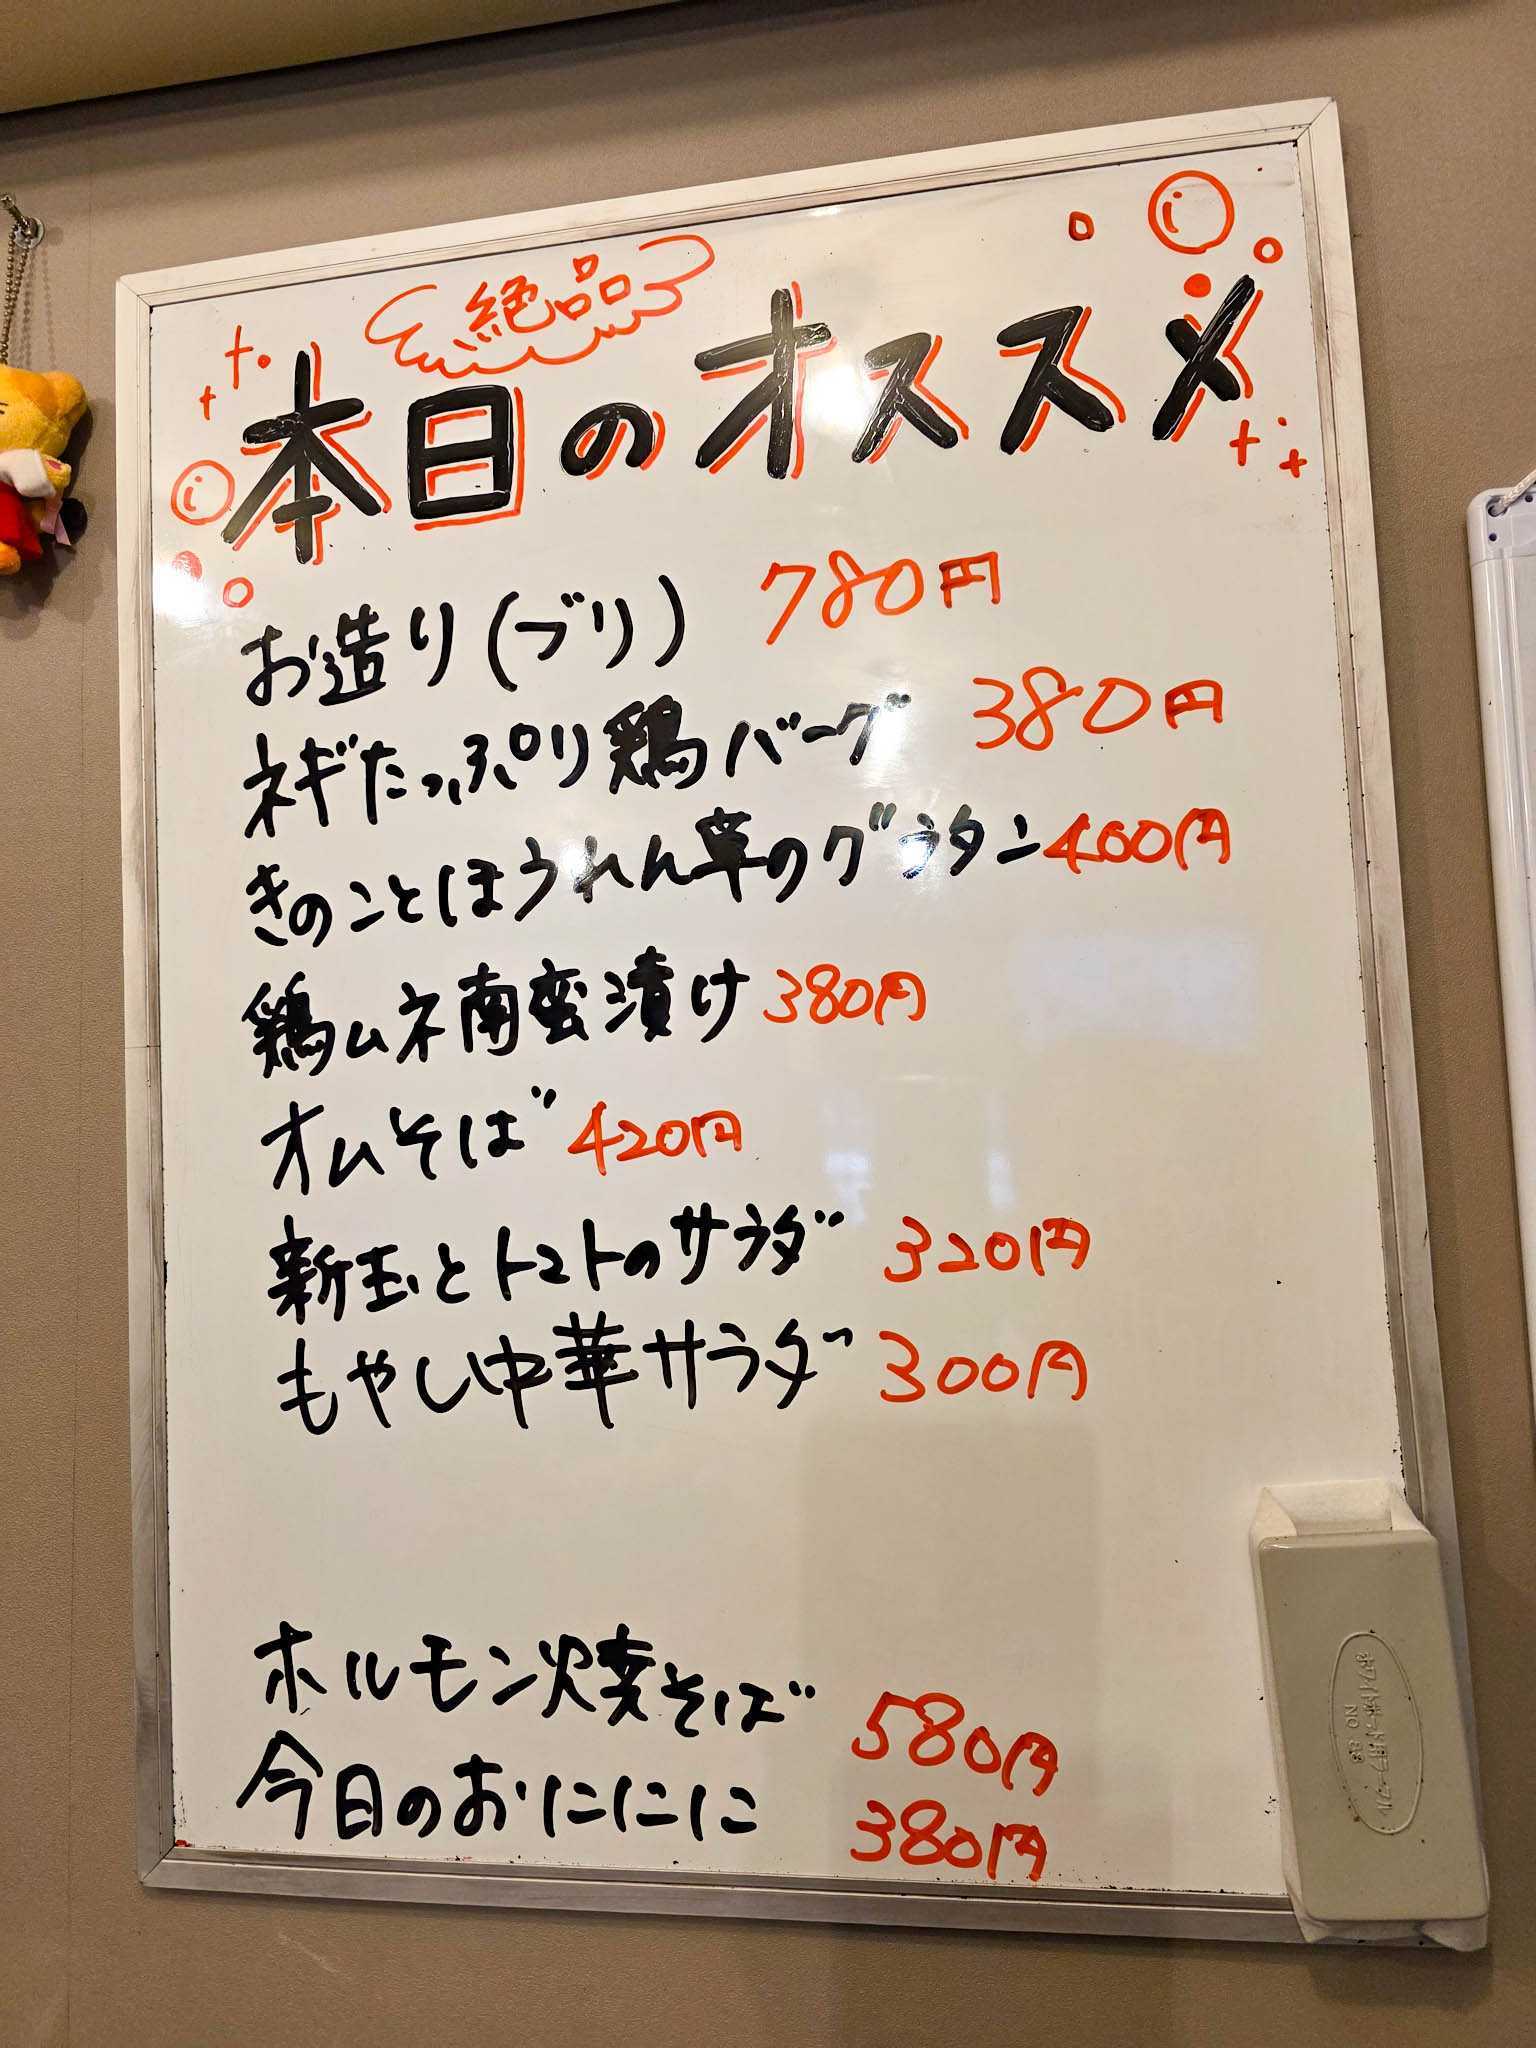 絶品
本日のオススメ
お造り(ブリ) 780円
ネギたっぷり鶏バーグ 380円
きのことほうれん草のグラタン 400円
鶏ムネ南蛮漬け 380円
オムそば 420円
新玉とトマトのサラダ 320円
もやし中華サラダ 300円
ホルモン焼そば 580円
今日のおにににに 380円
ホワイトボード用イレーザー
NO